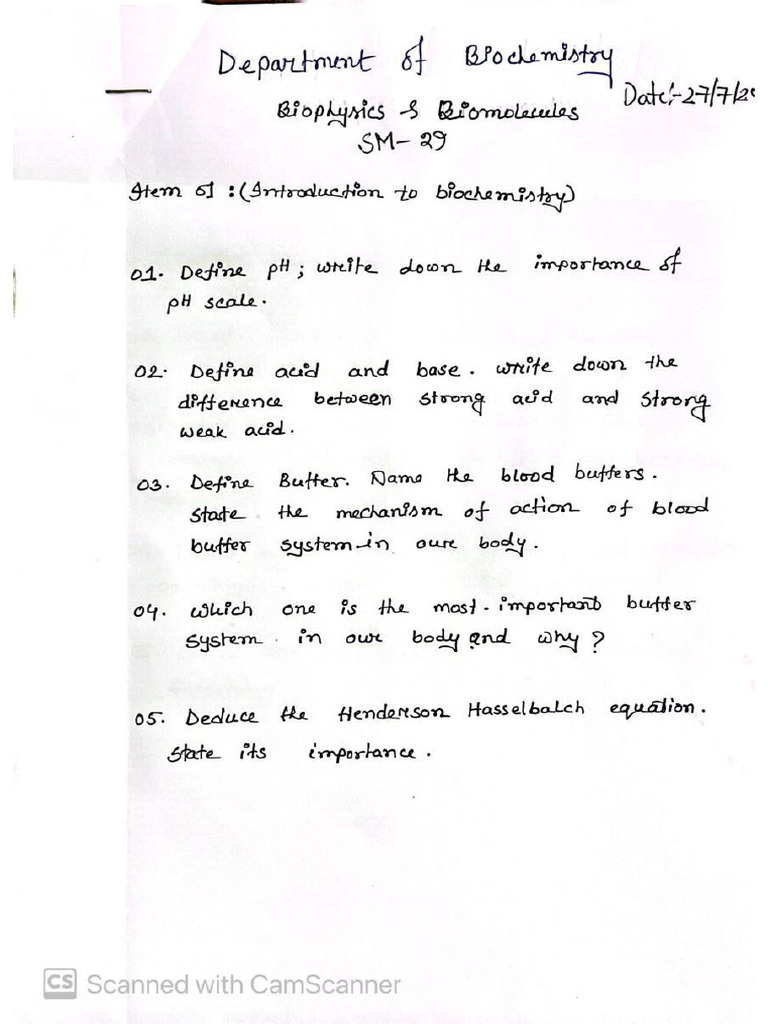 Department of Biochemistry
Date:-27/7/2
Biophysics & Biomolecules
SM- 29
Item 01 : (Introduction to biochemistry)
01. Define pH ; write down the importance of
pH scale.
02. Define acid and base. write down the
difference between strong acid and strong
weak acid.
03. Define Buffer. Name the blood buffers.
State the mechanism of action of blood
buffer system in oure body.
04. which one is the most important buffer
system in oure body and why ?
05. Deduce the Henderson Hasselbalch equation.
state its importance.
CS Scanned with CamScanner